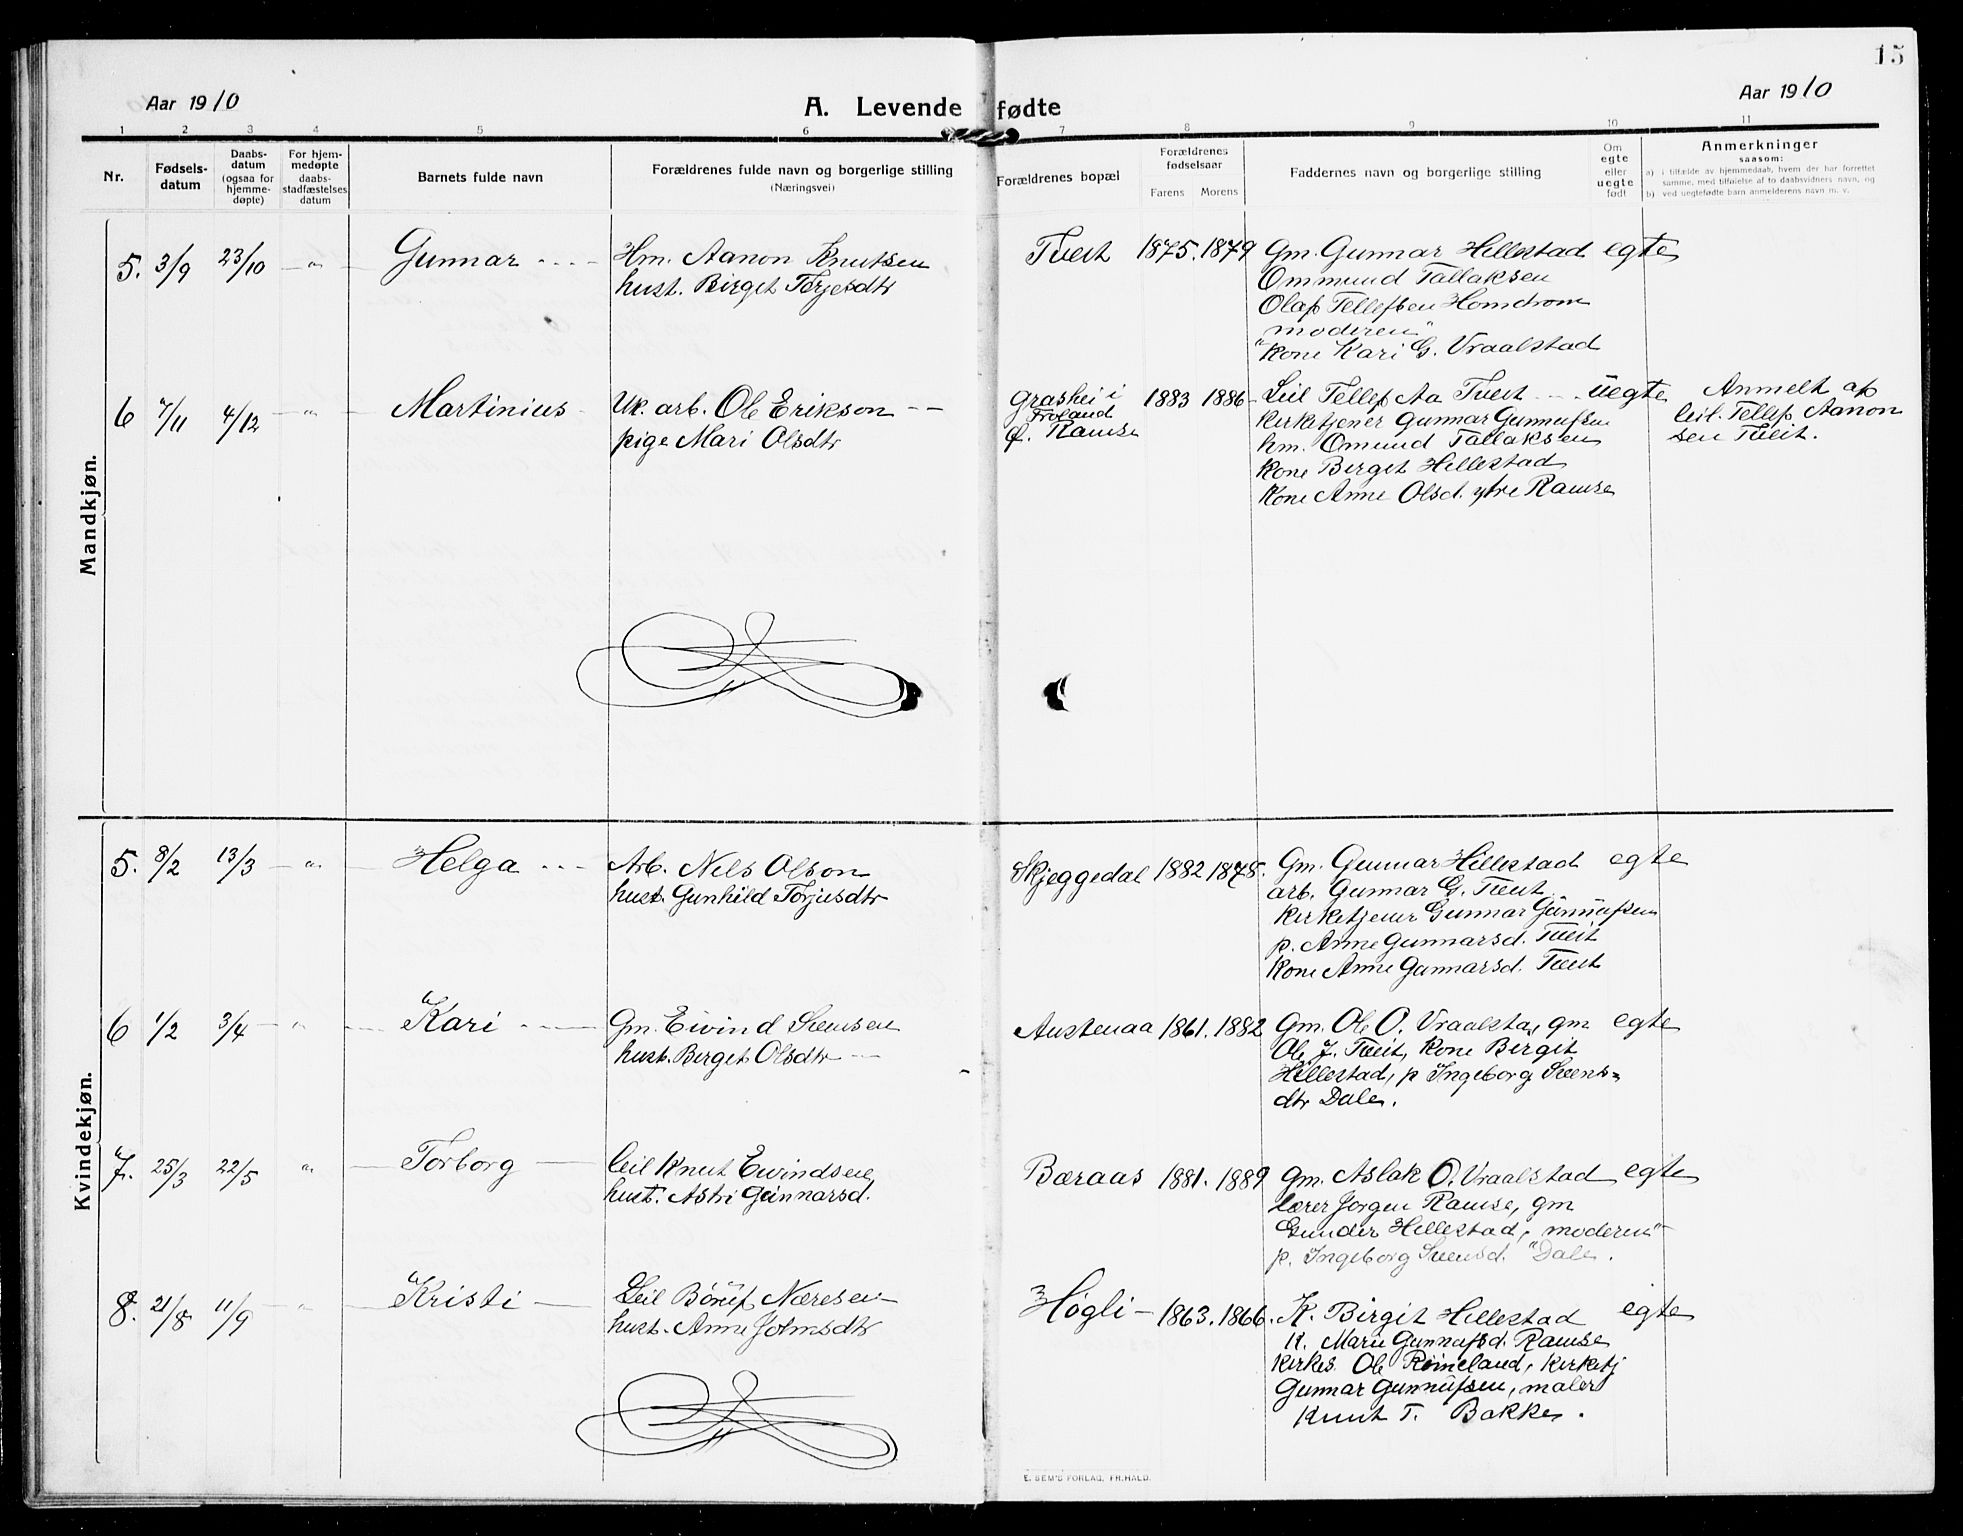 15
Aar 1910
A. Levende fødte
Aar 1910
1 2 3 4 5 6 7 8 9 10 11
Nr.
Fødsels-
datum
Daabs-
datum
(ogsaa for
hjemme-
døpte)
For hjem-
medøpte
daabs-
stadfæstelses
datum
Barnets fulde navn
Forældrenes fulde navn og borgerlige stilling
(Næringsvei)
Forældrenes bopæl
Forældrenes
fødselsaar
Farens Morens
Faddernes navn og borgerlige stilling
Om
egte
eller
uegte
født
Anmerkninger
saasom:
a) i tilfælde av hjemmedaab, hvem der har forrettet
samme, med tilføielse af to daabsvidners navn, og
b) ved uegtefødte barn anmelderens navn m. v.
Mandkjøn.
5. 3/9 23/10 — " — Gunnar
Hm. Aanon Knutsen
hust. Birget Terjesdtr
Tveit 1875. 1879
Gm. Gunnar Hillestad egte
Ommund Tallaksen
Olaf Tellefsen Homdrom
"moderen"
Kone Kari G. Vraalstad
6 7/11 4/12 — " — Martinius
Uk. arb. Ole Erikson
pige Mari Olsdtr
Grashei i
Froland
f. Ramse
1883 1886
Leil Tellef Aa Tveit uegte
kirketjener Gunnar Gunnufsen
hm. Omund Tallaksen
kone Birget Hillestad
Kone Anne Olsd. ytre Ramse
Anmelt af
leil. Tellef Aanon
sen Tveit.
Kvindekjøn.
5. 8/2 13/3 — " — Helga
Arb. Nels Olson
hust. Gunhild Torjusdtr
Skjeggedal 1882 1878.
Gm. Gunnar Hillestad egte
arb. Gunnar G. Tveit
kirketjener Gunnar Gunnufsen
p. Anne Gunnarsd. Tveit
Kone Anne Gunnarsd. Tveit
6 1/2 3/4 — " — Kari
Gm. Eivind Svensen
hust. Berget Olsdtr
Austenaa 1861. 1882
Gm. Ole O. Vraalsta, gm egte
Ole J. Tveit, Kone Birgit
Hillestad, p Ingeborg Svens-
dtr Dale.
7. 25/3 22/5 " — Torborg —
leil Knut Eivindsen
hust. Astri Gunnarsd.
Bæraas 1881. 1889
Gm. Aslak O. Vraalstad egte
Lærer Jorgen Ramse, gm
Gunder Hillestad, "moderen"
p. Ingeborg Svensd. Dale.
8. 21/8 11/9 — " — Kristi —
Leil Bønuf Næresen
hust. Anne Jonnsdtr
Høgli — 1863. 1866.
K. Birgit Hillestad egte
K. Marie Gunnufsd. Ramse
kirkes. Ole Reineland, kirketj
Gunnar Gunnufsen, maler
Knut T. Bakke.
E. SEM'S FORLAG, FR.HALD.